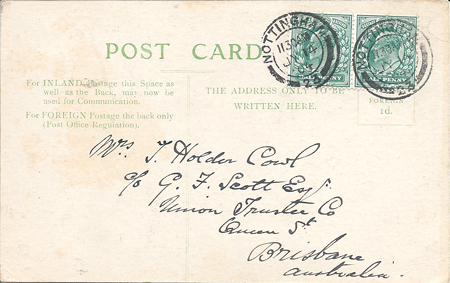 POST CARD
NOTTINGHAM
1130AM
NOTTINGHAM
PENNY
For INLAND Postage this Space as
well as the Back, may now be
used for Communication.
For FOREIGN Postage the back only
(Post Office Regulation).
THE ADDRESS ONLY TO BE
WRITTEN HERE.
FOREIGN
1d.
Mrs T. Holder Cowl
c/o G. F. Scott Esq.
Union Trustee Co
Queen St
Brisbane
Australia.